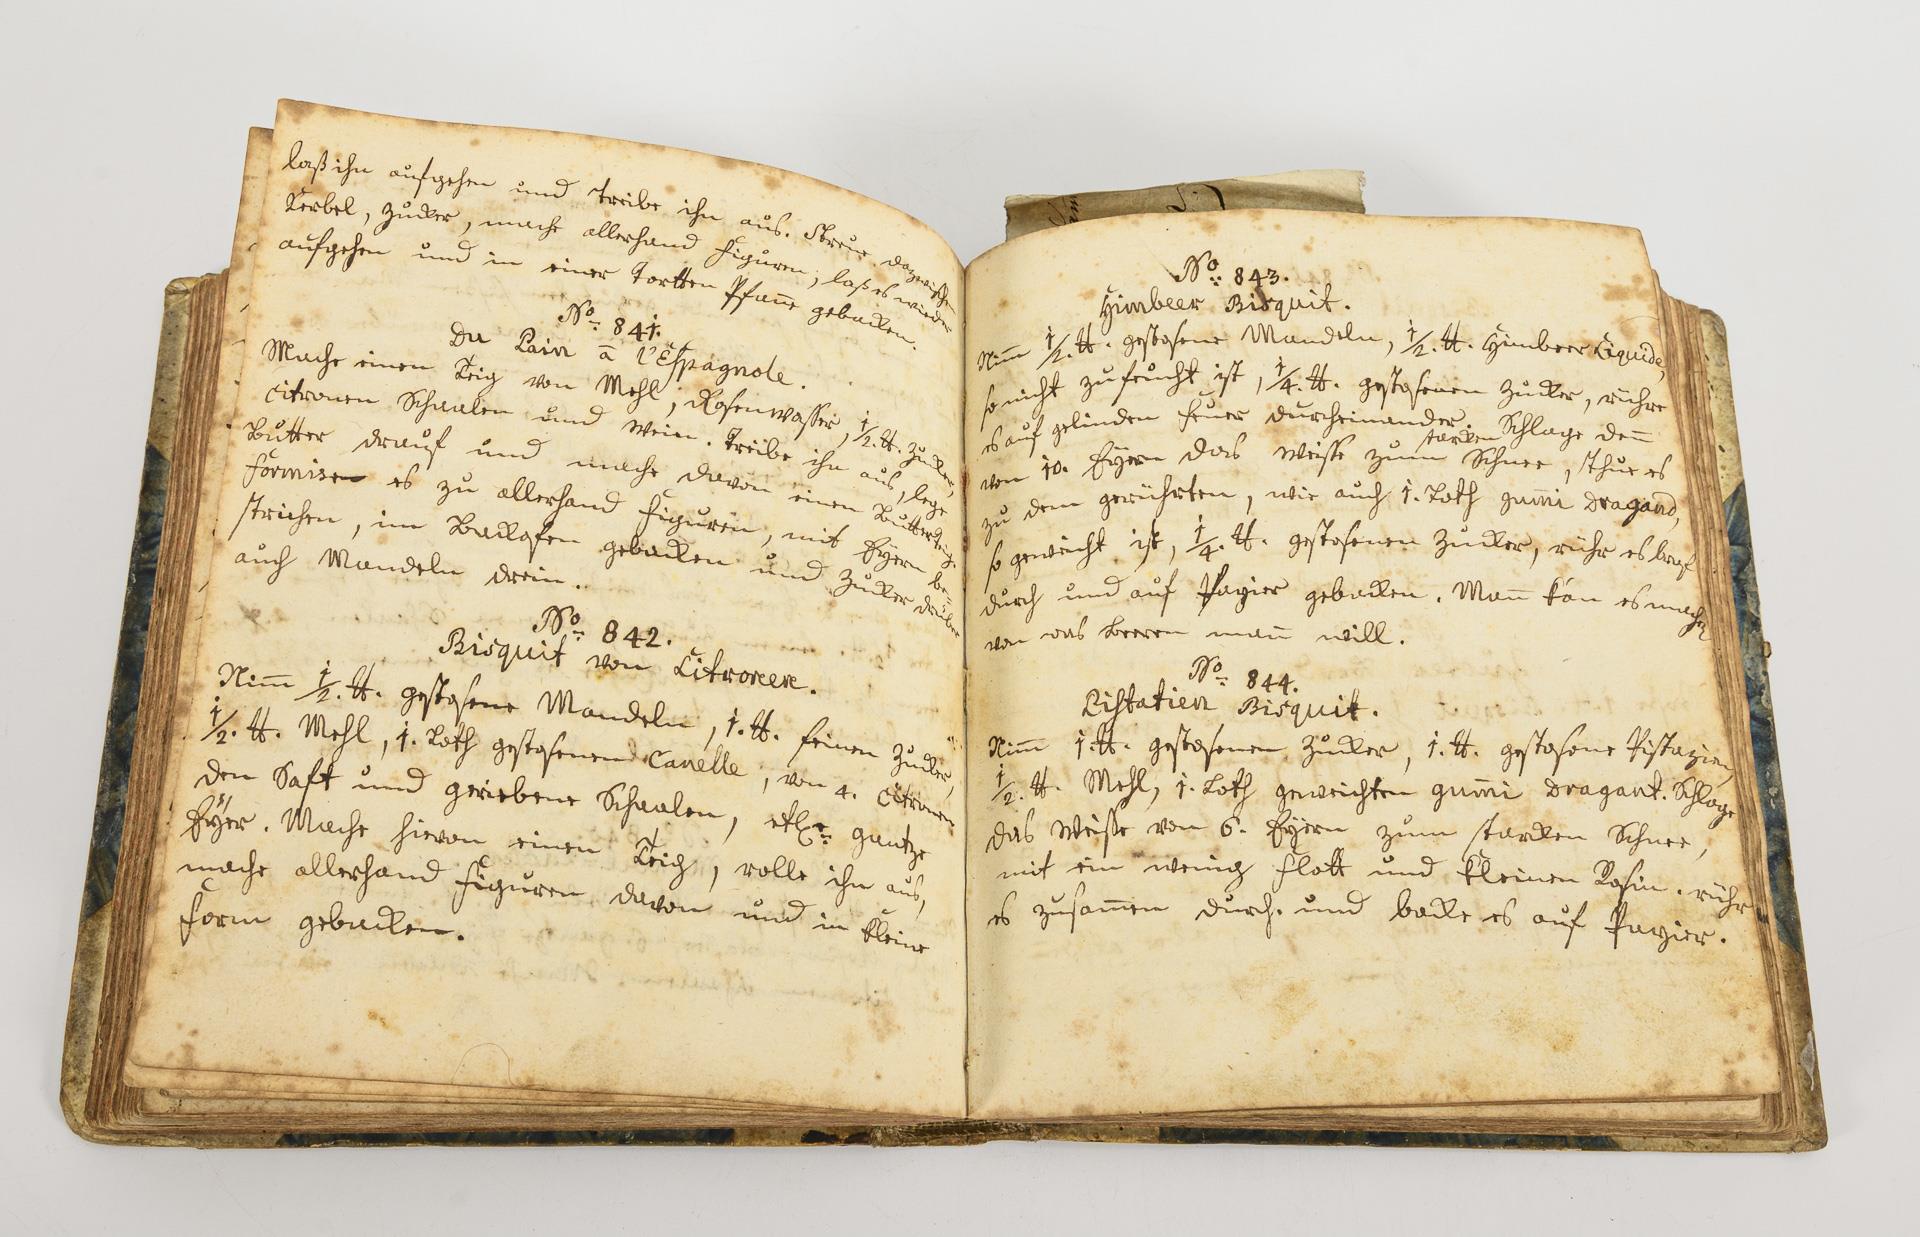 laß ihn aufgehen und treibe ihn aus. Streue dazwischen
Kerbel, Zucker, mache allerhand Figuren, laß es wieder
aufgehen und in einer Tortten Pfañe gebacken.
No. 841.
Du Pain a l'Espagnole.
Mache einen Teig von Mehl, Rosenwasser, 1/2. ℔. Zucker,
Citronen Schaalen und Wein. Treibe ihn aus, lege
Butter drauf und mache davon einen Butterteig.
Formiren es zu allerhand Figuren, mit Eyern be-
strichen, im Backofen gebacken und Zucker drüber
auch Mandeln drein.
No. 842.
Bisquit von Citronen.
Nim̅ 1/2. ℔. gestosene Mandeln, 1. ℔. feinen Zucker,
1/2. ℔. Mehl, 1. Loth gestosenen Canelle, von 4. Citronen
den Saft und geriebene Schaalen, gantze
Eÿer. Mache hievon einen Teig, rolle ihn aus,
mache allerhand Figuren davon und in kleine
Form gebacken.
No. 843.
Himbeer Bisquit.
Nim̅ 1/2. ℔. gestosene Mandeln, 1/2. ℔. Himbeer Liquide,
so nicht zu feucht ist, 1/4. ℔. gestosenen Zucker, rühre
es auf gelinden Feuer durcheinander. Schlage den̅
von 10. Eÿern das Weisse zum starken Schnee, thue es
zu dem gerührten, wie auch 1. Loth gum̅i Dragand,
so geweicht ist, 1/4. ℔. gestosenen Zucker, rühr es braf
durch und auf Papier gebacken. Man̅ kan es machen
von was Beeren man̅ will.
No. 844.
Pistatien Bisquit.
Nim̅ 1. ℔. gestosenen Zucker, 1. ℔. gestosene Pistazien,
1/2. ℔. Mehl, 1. Loth geweichten gum̅i Dragant. Schlage
das Weisse von 6. Eÿern zum starcken Schnee,
mit ein wenig Flott und kleinen Rosin. rühr
es zusam̅en durch. und backe es auf Papier.